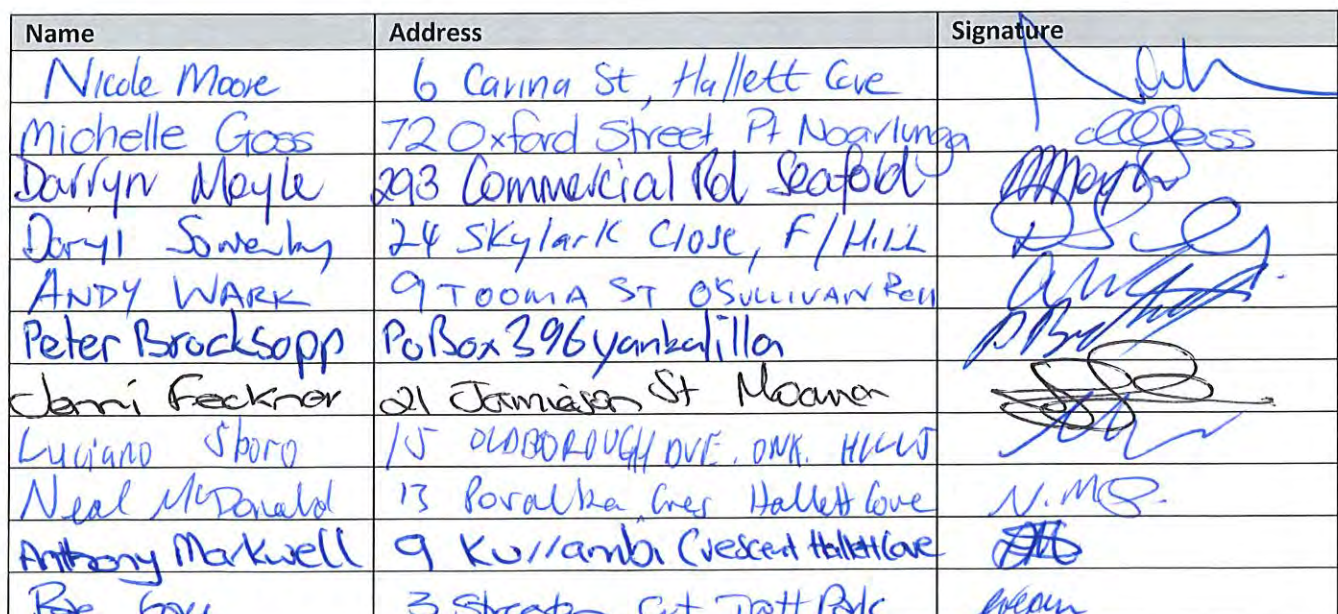 Name Address Signature
Nicole Moore 6 Carina St, Hallett Cove
Michelle Goss 72 Oxford Street Pt Noarlunga
Darryn Moyle 293 Commercial Rd Seafold
Daryl Sowerby 24 Skylark Close, F/Hill
ANDY WARK 9 TOOMA ST O'SULLIVAN
Peter Brocksopp PoBox 396 yankalilla
Jenni Fecknor 21 Jamieson St Moana
Luciano Sboro 15 OLDBOROUGH DVE. ONK. HILLS
Neal McDonald 13 Cres Hallett Cove N.McD.
Anthony Markwell 9 Kurrambi Crescent Hallett Cove
3 Crt Trott Park